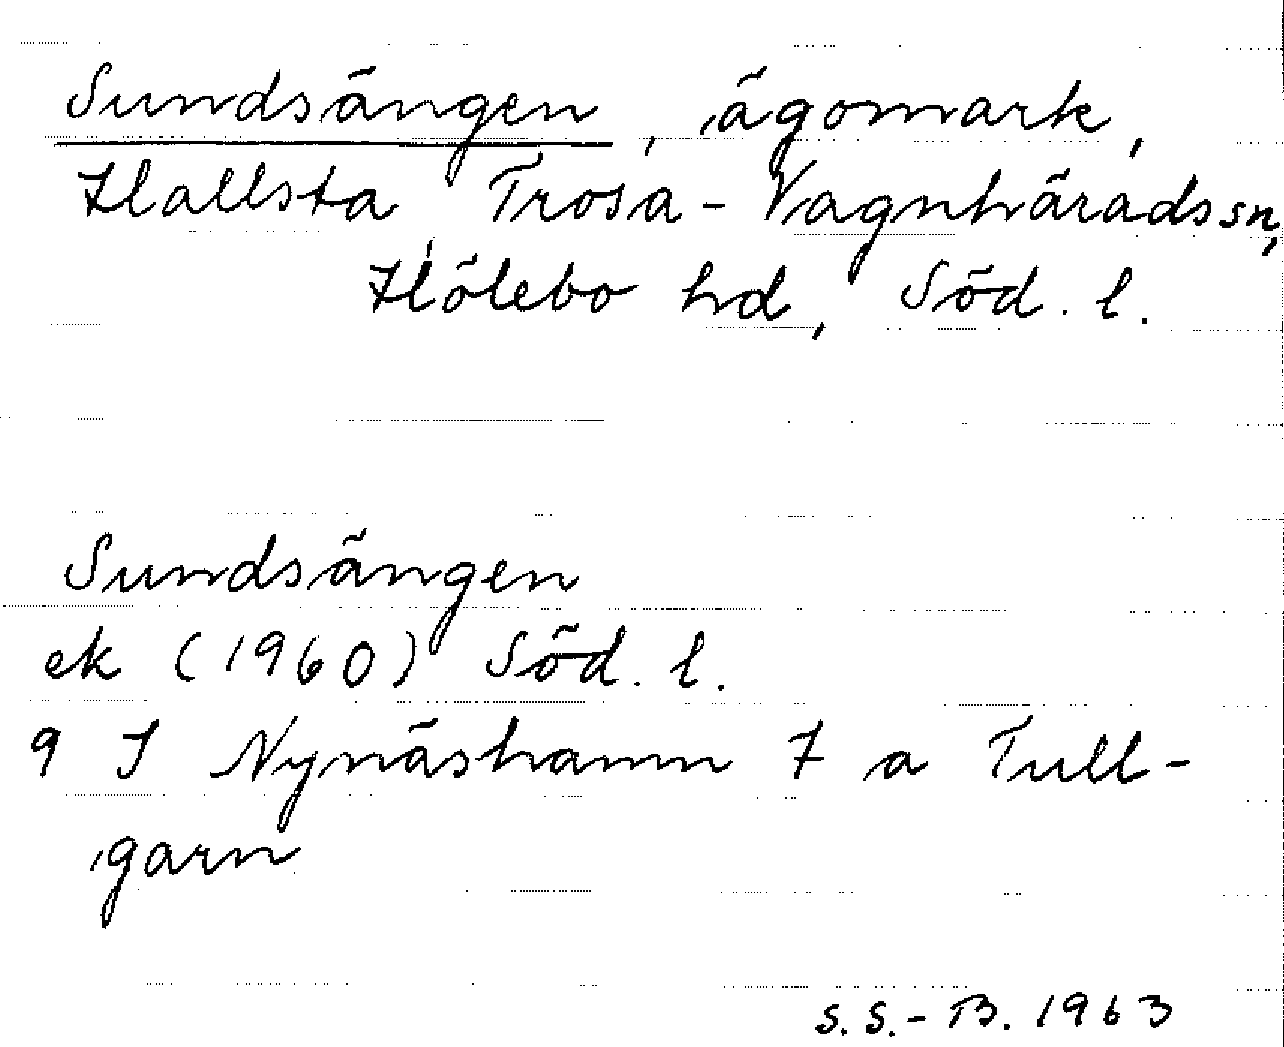 Sundsängen, ägomark,
Hallsta, Trosa-Vagnhärads sn,
Hölebo hd, Söd. l.
Sundsängen
ek (1960) Söd. l.
9 I Nynäshamn 7 a Tull-
garn
S.S.-B. 1963